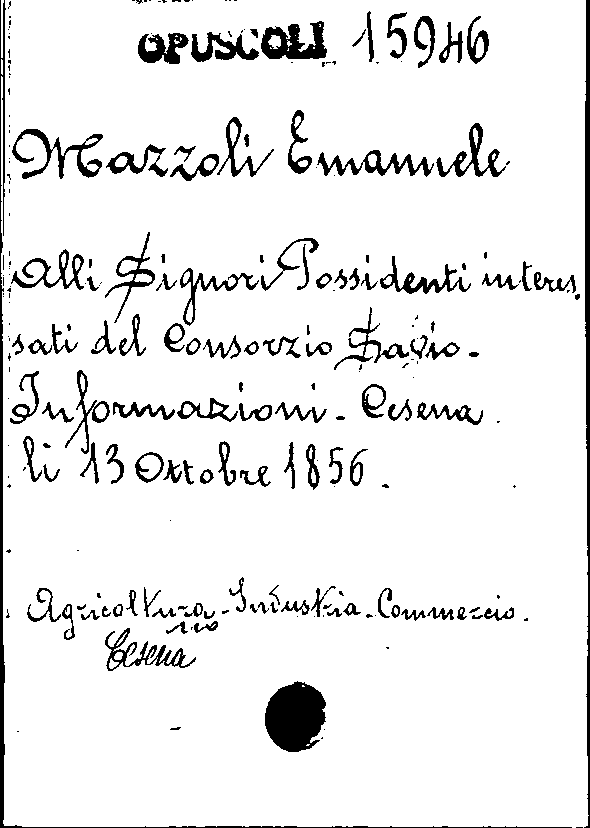 OPUSCOLI 15946
Mazzoli Emanuele
Alli Signori Possidenti interes.
sati del Consorzio Savio.
Informazioni. Cesena
li 13 Ottobre 1856.
Agricoltura. Industria. Commercio.
Cesena